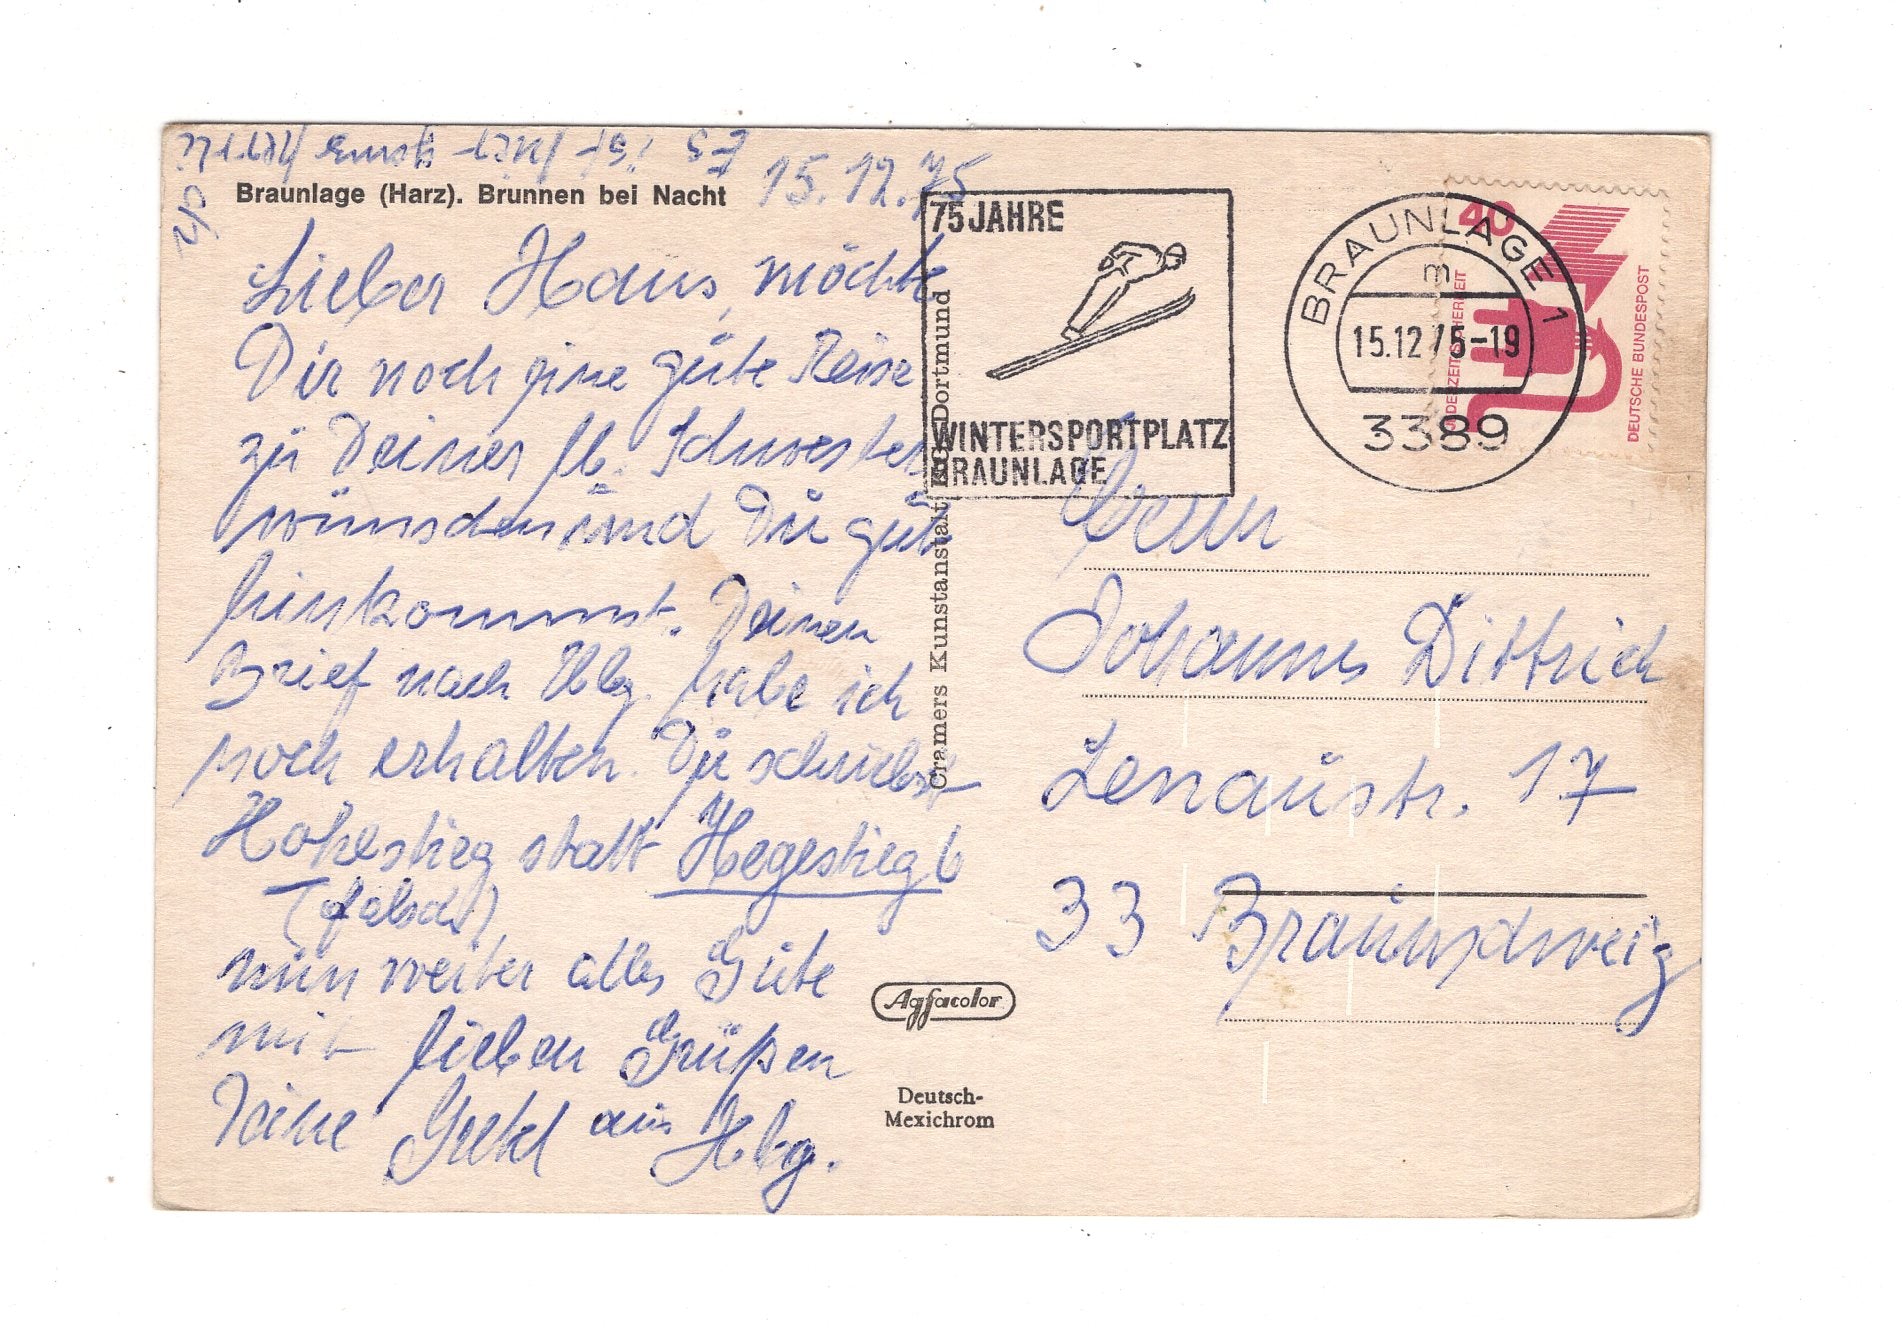 Es ist hier ganz herrli
ch
Braunlage (Harz). Brunnen bei Nacht
15.12.75
Lieber Hans, möchte
Dir noch eine gute Reise
zu Deiner lb. Schwester
wünschen und Du gut
hinkommst. Deinen
Brief nach Hbg. habe ich
noch erhalten. Du schriebst
Hohestieg statt Hegestieg 6
(falsch)
nun weiter alles Gute
mit lieben Grüßen
Deine aus Hbg.
Cramers Kunstanstalt KG Dortmund
Agfacolor
Deutsch-
Mexichrom
75 JAHRE
WINTERSPORTPLATZ
BRAUNLAGE
BRAUNLAGE 1
m
15.12.75-19
3389
40
JEDERZEIT SICHERHEIT
DEUTSCHE BUNDESPOST
Herrn
Johannes Dittrich
Lenaustr. 17
33 Braunschweig